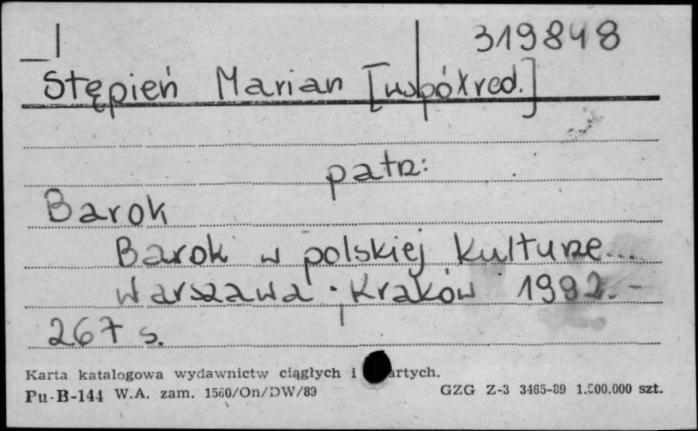 319848
Stępień Marian [współred.]
patrz:
Barok
Barok w polskiej kulturze...
Warszawa · Kraków 1992.-
267 s.
Karta katalogowa wydawnictw ciągłych i artych.
Pu-B-144 W.A. zam. 1560/On/DW/89 GZG Z-3 3465-89 1.500.000 szt.